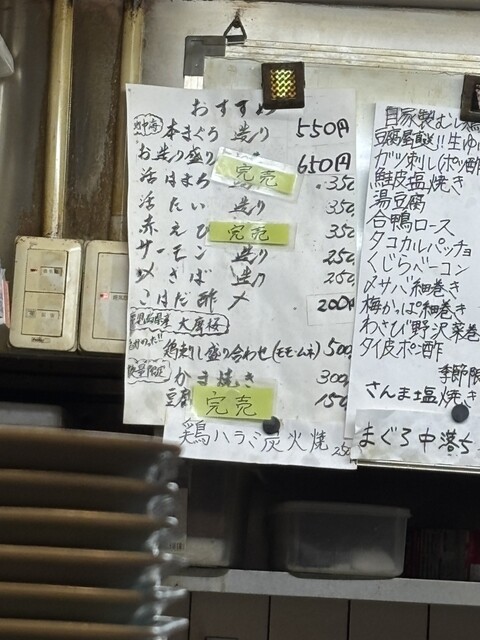 おすすめ
地中海 本まぐろ 造り 550円
お造り盛り 650円
完売
活はまち 350
活たい 造り 350
赤えび 完売 350
サーモン 造り 250
〆さば 造り 250
こはだ酢〆 200円
大摩桜
鶏刺し盛り合わせ(モモ・ムネ) 500
数量限定 かま焼き 300
完売 150
鶏ハラミ炭火焼 250
自家製むし鶏
豆腐屋直送!!生ゆ
ガツ刺し(ポン酢
鮭皮塩焼き
湯豆腐
合鴨ロース
タコカルパッチョ
くじらベーコン
〆サバ細巻き
梅かっぱ細巻き
わさび野沢菜巻
タイ皮ポン酢
季節限
さんま塩焼き
まぐろ中落ち